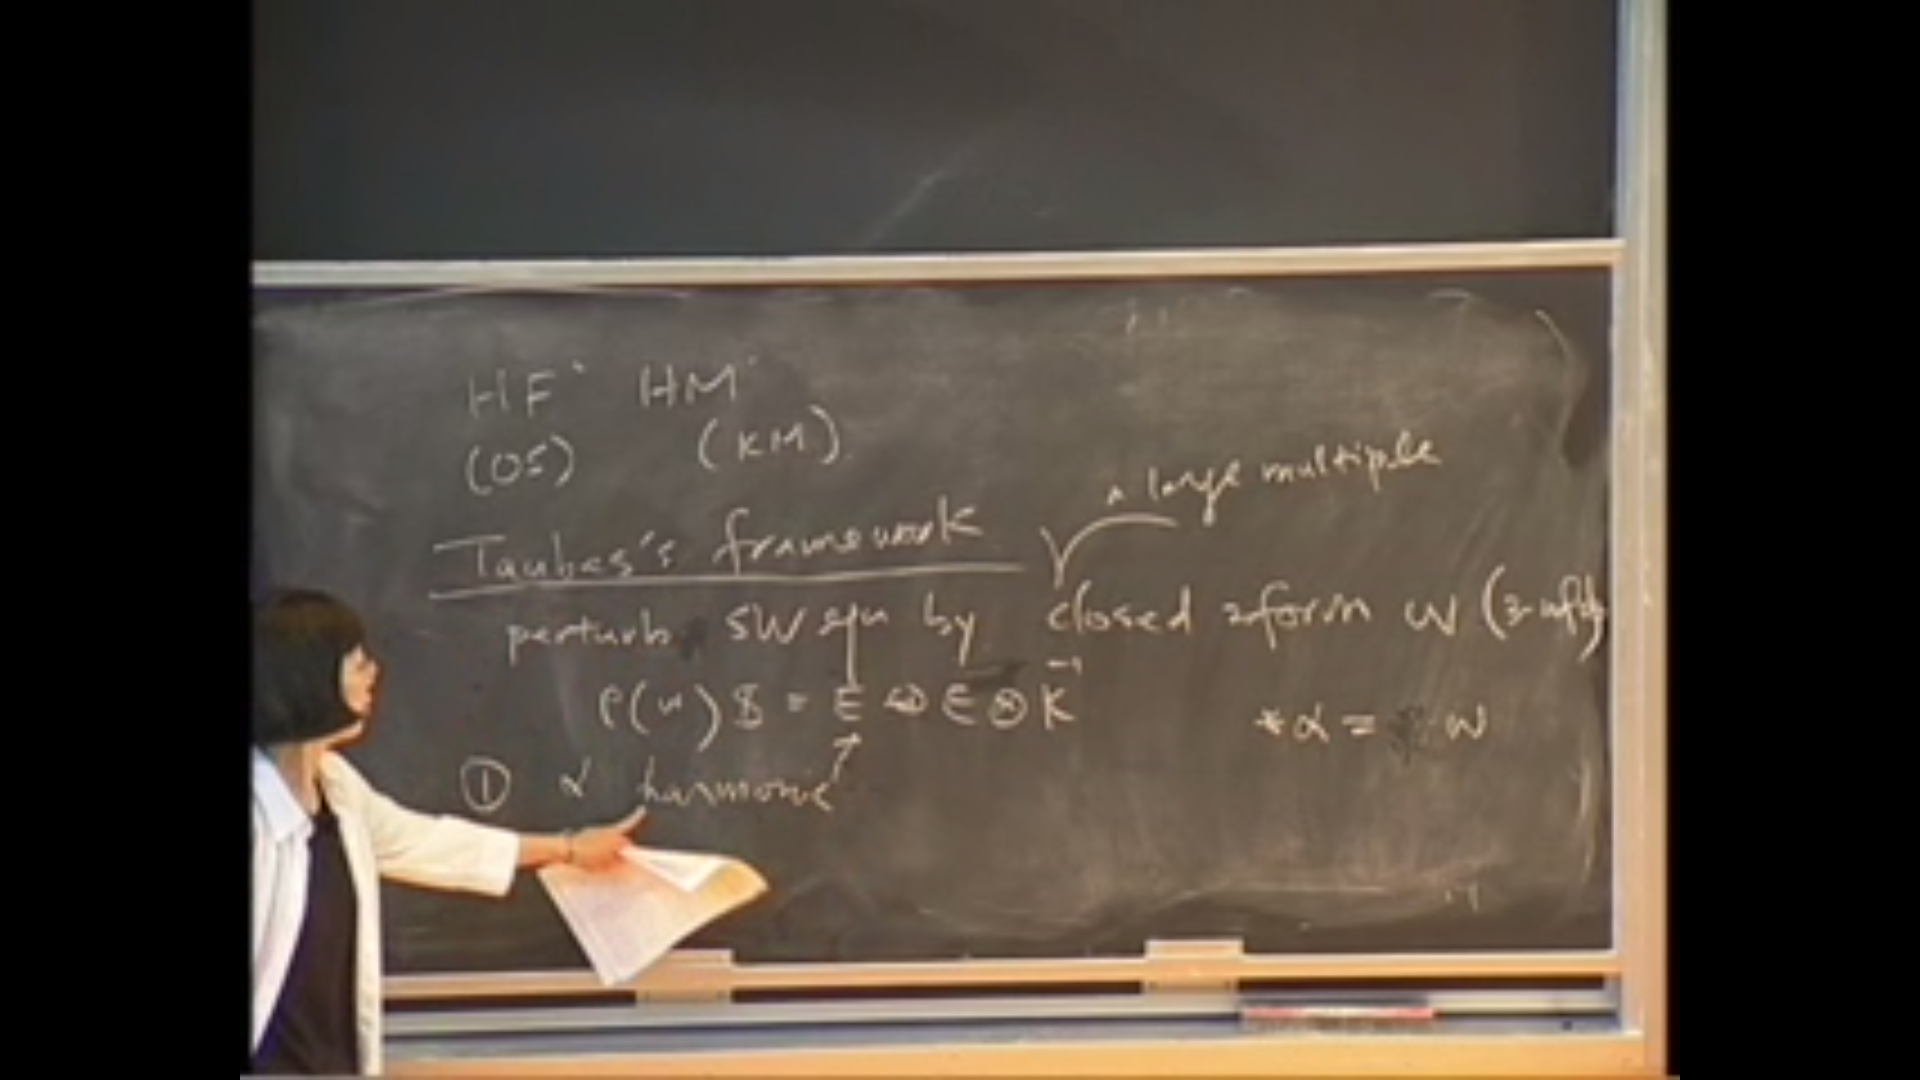 HF˙ HM˙
(OS) (KM)
a large multiple
Taubes's framework
perturb SW eqn by closed 2form w (3-mfd)
ρ(w) $ = E ⊕ E ⊗ K⁻¹
*α = w
① α harmonic